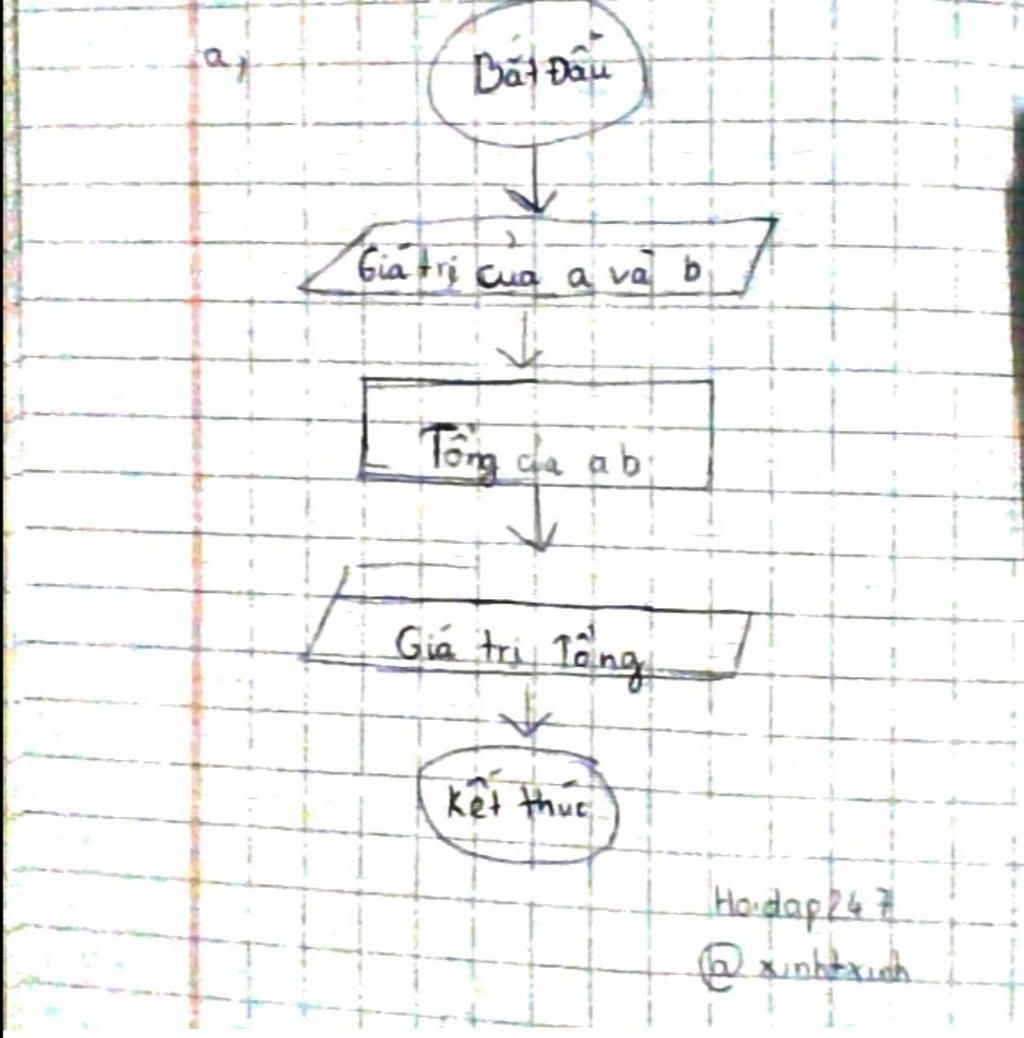 a,
Bắt Đầu
Giá trị của a và b
Tổng của a b
Giá trị Tổng
Kết thúc
Hoidap247
@ xinhtxinh